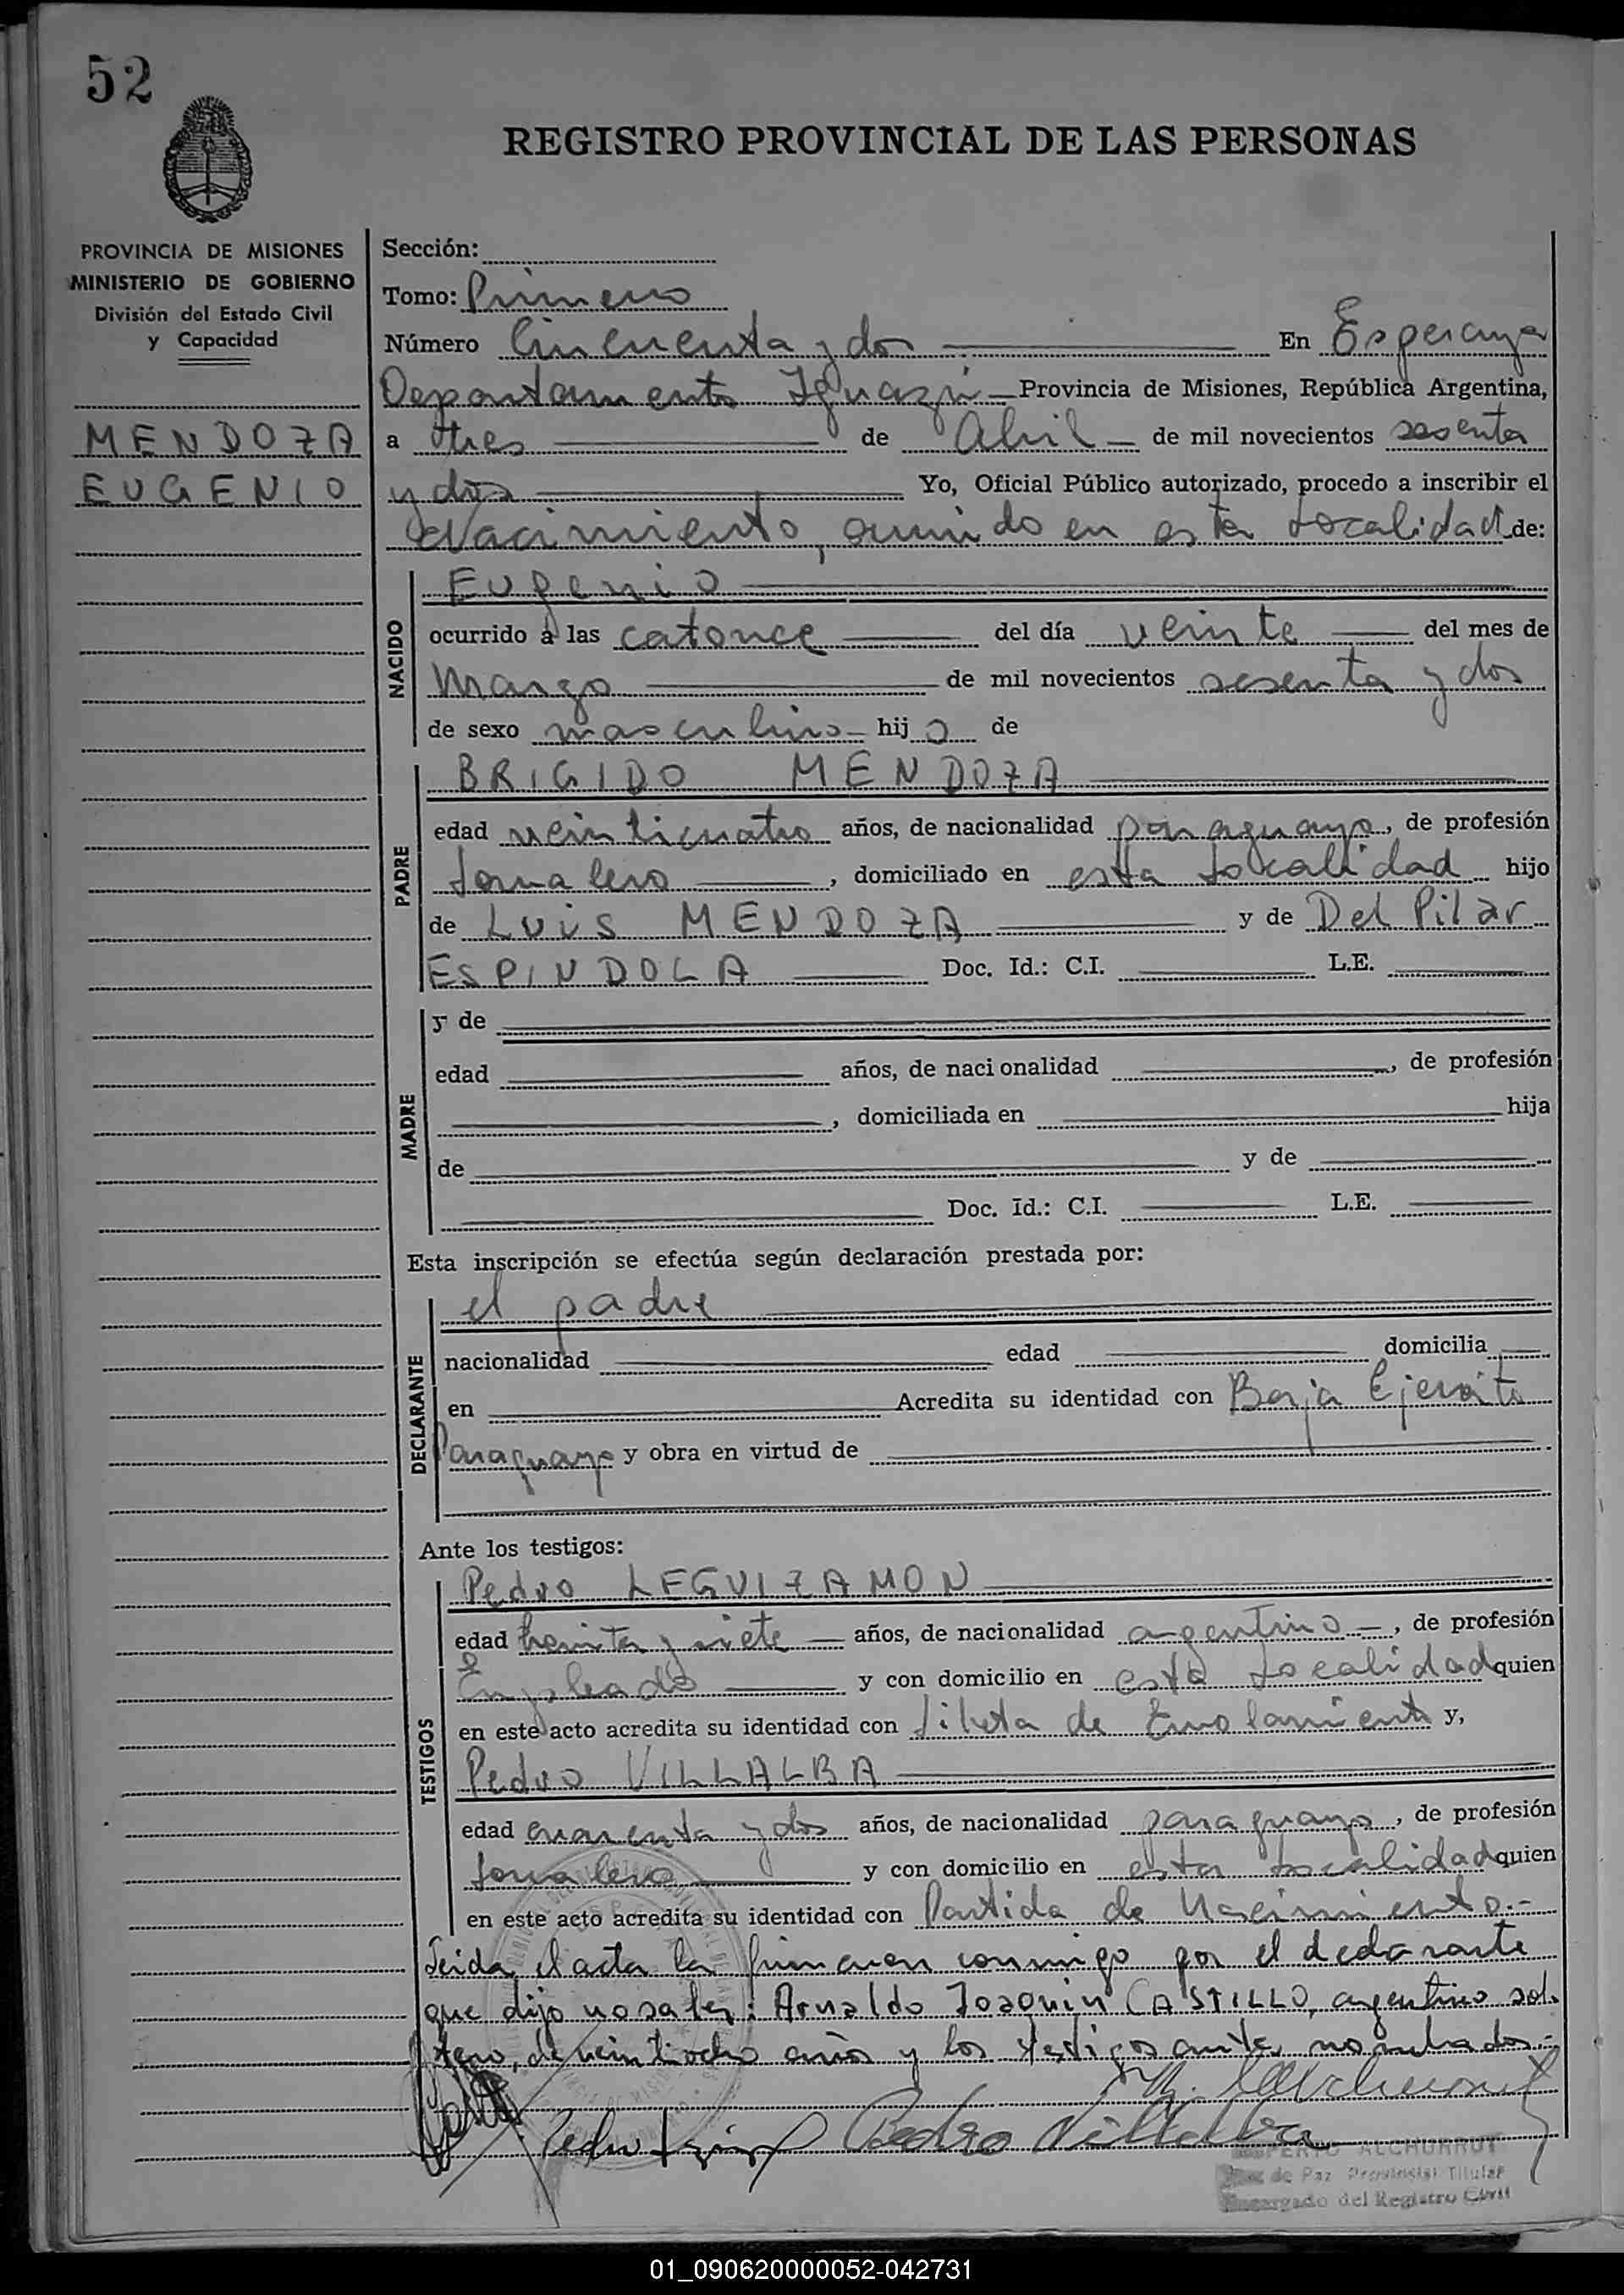 52
REGISTRO PROVINCIAL DE LAS PERSONAS
PROVINCIA DE MISIONES
MINISTERIO DE GOBIERNO
División del Estado Civil
y Capacidad
MENDOZA
EUGENIO
Sección:
Tomo: Primero
Número Cincuenta y dos En Esperanza
Departamento Iguazú Provincia de Misiones, República Argentina,
a tres de Abril de mil novecientos sesenta
y dos Yo, Oficial Público autorizado, procedo a inscribir el
Nacimiento, ocurrido en esta Localidad de:
NACIDO
Eugenio
ocurrido a las catorce del día veinte del mes de
Marzo de mil novecientos sesenta y dos
de sexo masculino hijo de
PADRE
BRIGIDO MENDOZA
edad veinticuatro años, de nacionalidad paraguayo, de profesión
Jornalero, domiciliado en esta Localidad hijo
de LUIS MENDOZA y de Del Pilar
ESPINDOLA Doc. Id.: C.I. L.E.
MADRE
y de
edad años, de nacionalidad , de profesión
, domiciliada en hija
de y de
Doc. Id.: C.I. L.E.
Esta inscripción se efectúa según declaración prestada por:
DECLARANTE
el padre
nacionalidad edad domicilia
en Acredita su identidad con Baja Ejercito
Paraguayo y obra en virtud de
Ante los testigos:
TESTIGOS
Pedro LEGUIZAMON
edad treinta y siete años, de nacionalidad argentino, de profesión
Empleado y con domicilio en esta Localidad quien
en este acto acredita su identidad con Libreta de Enrolamiento y,
Pedro VILLALBA
edad cuarenta y dos años, de nacionalidad paraguayo, de profesión
Jornalero y con domicilio en esta Localidad quien
en este acto acredita su identidad con Partida de Nacimiento.-
Leida el acta la firman conmigo por el declarante
que dijo no saber: Arnaldo Joaquin CASTILLO, argentino sol-
tero, de veintiocho años y los testigos antes nombrados.-
Pedro Villalba
ALCHURRUT
Juez de Paz Provincial Titular
Encargado del Registro Civil
01_090620000052-042731